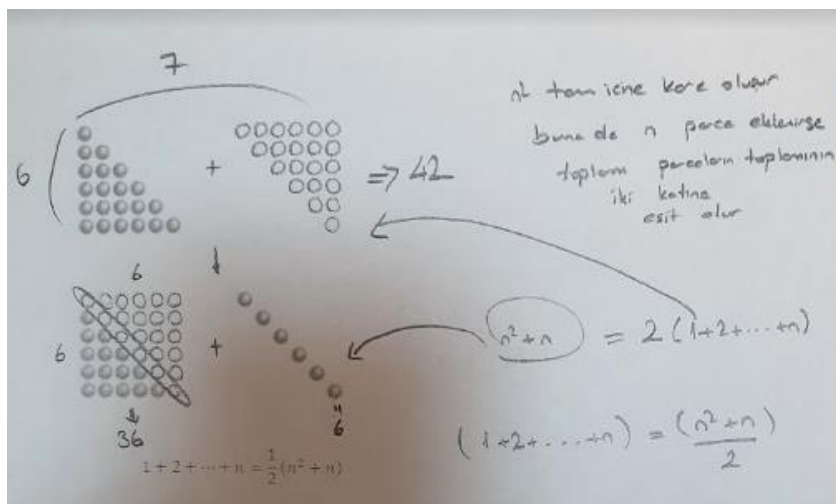 7
n² tam içine kare oluşur
buna da n parça eklenirse
toplam parçaların toplamının
iki katına
eşit olur
6
+
=> 42
6
6
+
n²+n = 2(1+2+...+n)
36
"
6
1 + 2 + ⋯ + n = 1/2 (n² + n)
(1+2+...+n) = (n²+n)/2